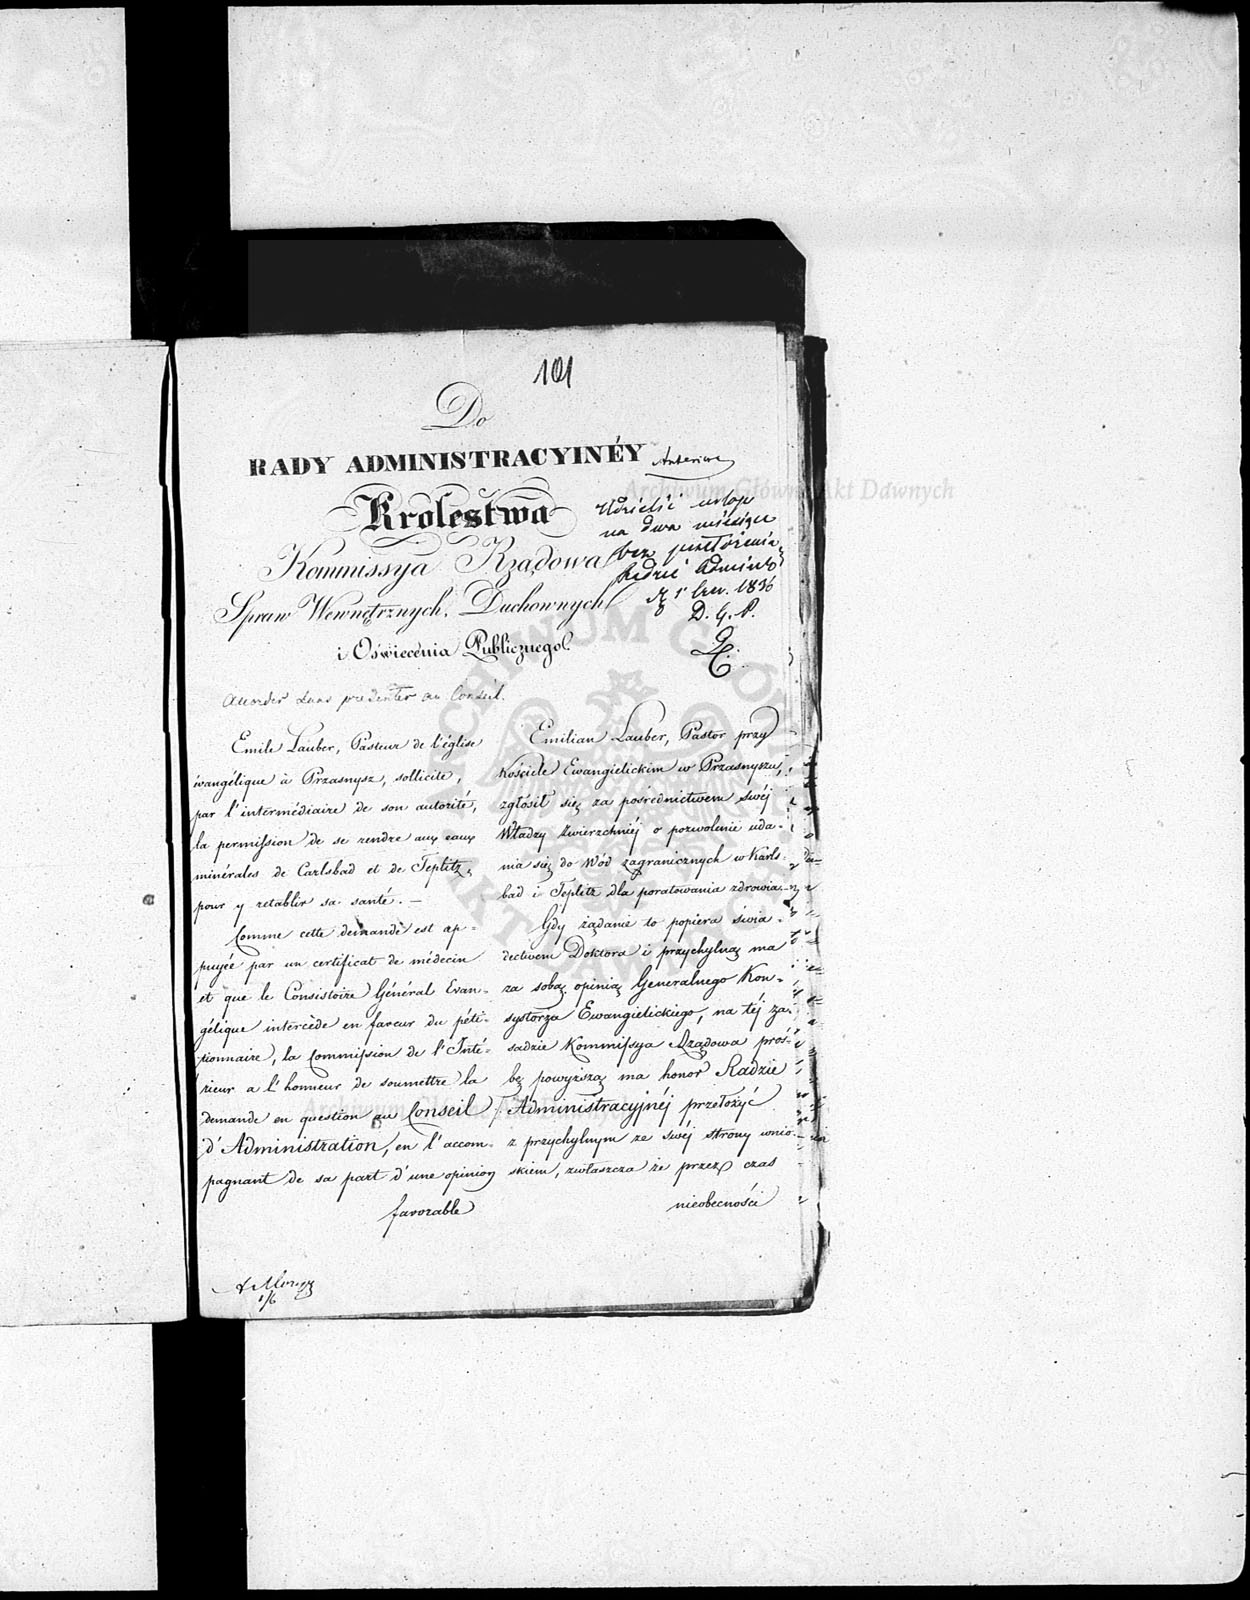 101
Do
RADY ADMINISTRACYINÉY
Królestwa
Kommissya Rządowa
Spraw Wewnętrznych, Duchownych
i Oświecenia Publicznego.
Udzielić urlop
na dwa miesiące
bez przełożenia
Radzie Administr
1836
D. G. P.
Accorder sans présenter au Conseil.
Emile Lauber, Pasteur de l'église
évangélique à Przasnysz, sollicite,
par l'intermédiaire de son autorité,
la permission de se rendre aux eaux
minérales de Carlsbad et de Teplitz,
pour y retablir sa santé. —
Comme cette demande est ap=
puyée par un certificat de médecin
et que le Consistoire Général Evan=
gélique intercède en faveur du péti=
tionnaire, la Commission de l'Inté=
rieur a l'honneur de soumettre la
demande en question au Conseil
d'Administration, en l'accom=
pagnant de sa part d'une opinion
favorable
Emilian Lauber, Pastor przy
Kościele Ewangielickim w Przasnyszu,
zgłósił się za pośrednictwem swéj
Władzy Zwierzchniéj o pozwolenie uda=
nia się do Wód zagranicznych w Karls=
bad i Teplitz dla poratowania zdrowia.
Gdy żądanie to popiera świa=
dectwem Doktora i przychylną ma
za sobą opinią Generalnego Kon=
systorza Ewangielickiego, na téj za=
sadzie Kommissya Rządowa proś=
bę powyższą ma honor Radzie
Administracyjnéj przełożyć
z przychylnym ze swéj strony wnio=
skiem, zwłaszcza że przez czas
nieobecności
1/6
Archiwum Główne Akt Dawnych